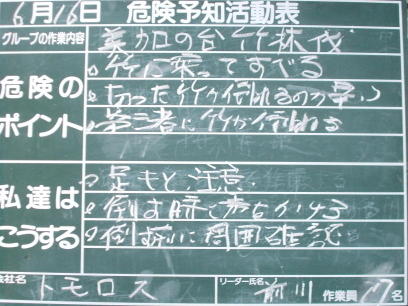 6月16日 危険予知活動表
グループの作業内容 美加の台竹林伐
危険のポイント
○竹に乗ってすべる
○切った竹が倒れるのが早い
○第三者に竹が倒れる
私達はこうする
○足もと注意
○倒す時声をかける
○倒す前に周囲確認
会社名 トモロス リーダー氏名 前川 作業員 17名